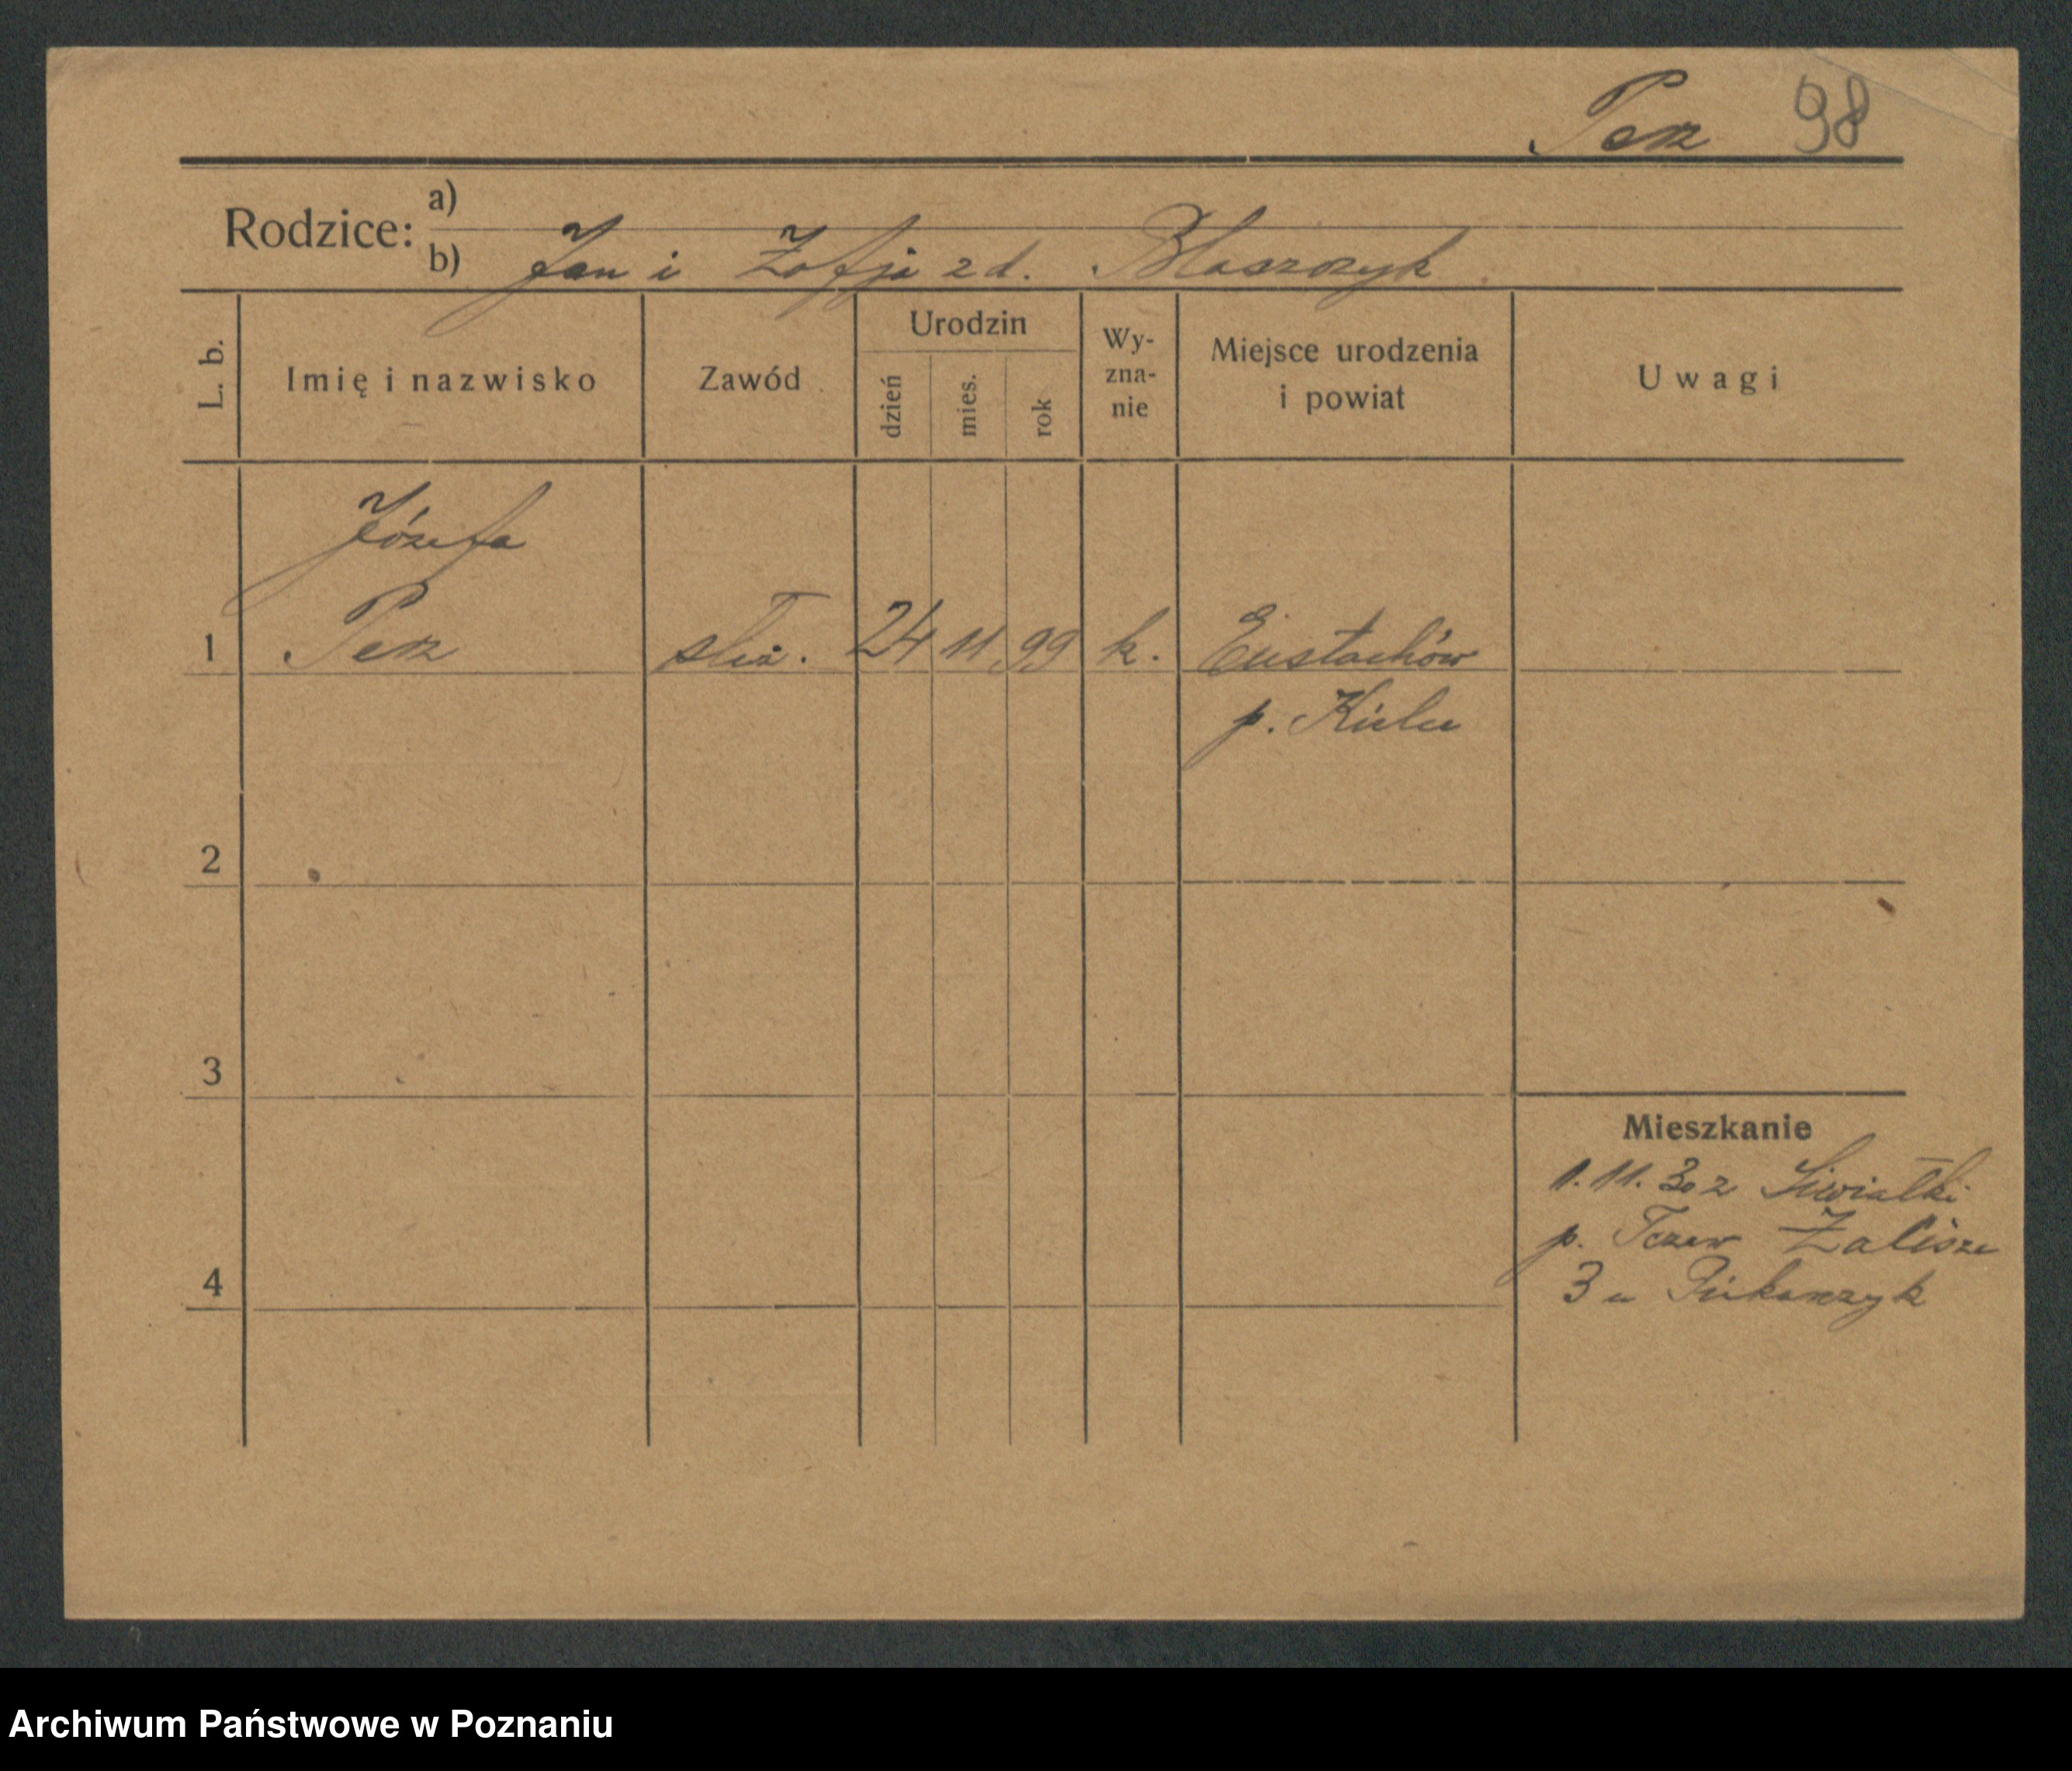 Perz 98
Rodzice: a)
b) Jan i Zofja z d. Błaszczyk
L. b. Imię i nazwisko Zawód Urodzin dzień mies. rok Wy-zna-nie Miejsce urodzenia i powiat Uwagi
Józefa
1 Perz służ. 24 11 99 k. Eustachów
p. Kielce
2
3
Mieszkanie
1.11.30 z Siwiałki
p. Tczew Zacisze
4
3 u Piekarczyk
Archiwum Państwowe w Poznaniu